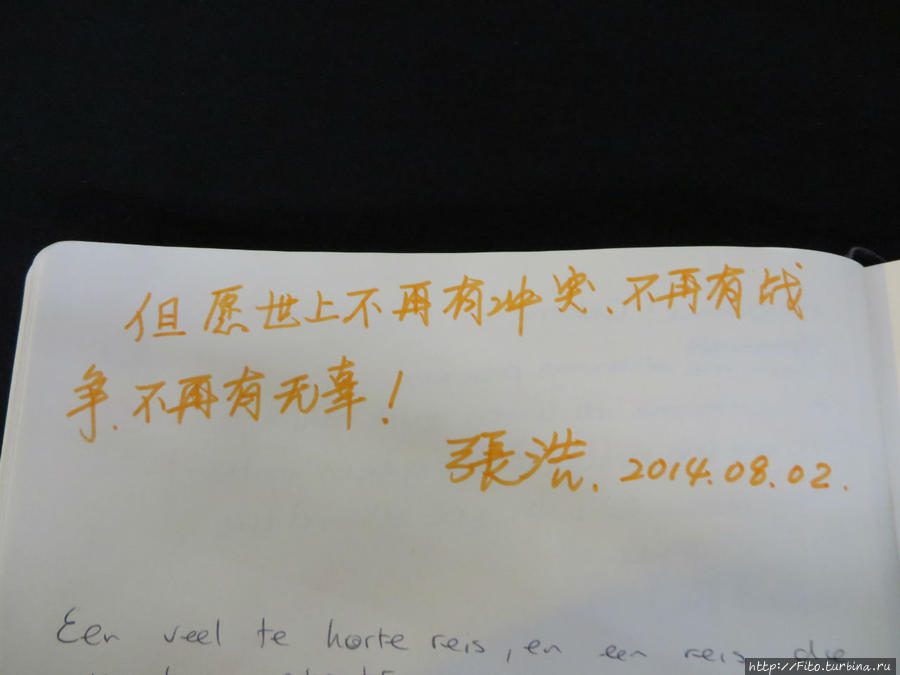 但愿世上不再有冲突、不再有战
争、不再有无辜！
張浩. 2014.08.02.
Een veel te korte reis, en een reis die
http://Fito.turbina.ru